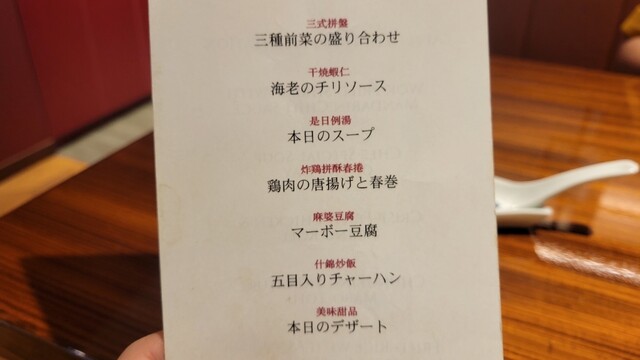 三式拼盤
三種前菜の盛り合わせ
干燒蝦仁
海老のチリソース
是日例湯
本日のスープ
炸鶏拼酥春捲
鶏肉の唐揚げと春巻
麻婆豆腐
マーボー豆腐
什錦炒飯
五目入りチャーハン
美味甜品
本日のデザート